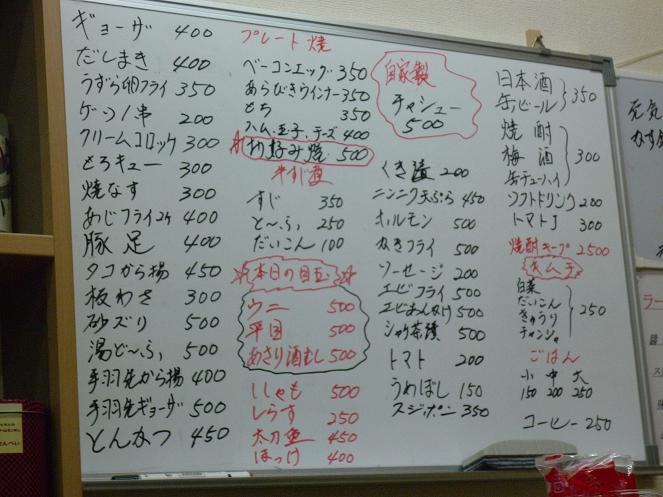 ギョーザ 400
だしまき 400
うずら卵フライ 350
ゲソ串 200
クリームコロッケ 300
もろキュー 300
焼なす 300
あじフライ2ケ 400
豚足 400
タコから揚 450
板わさ 300
砂ズリ 500
湯ど〜ふ 500
手羽先から揚 400
手羽先ギョーザ 500
とんかつ 450
プレート焼
ベーコンエッグ 350
あらびきウインナー 350
もち 350
ハム、玉子、チーズ 400
お好み焼 500
牛すじ煮
すじ 350
と〜ふ 250
だいこん 100
本日の目玉
ウニ 500
平目 500
あさり酒むし 500
ししゃも 500
しらす 250
太刀魚 450
ほっけ 400
自家製
チャシュー
500
くき漬 200
ニンニク天ぷら 450
ホルモン 500
ねぎフライ 500
ソーセージ 200
エビフライ 500
シャケ茶漬 500
トマト 200
うめぼし 150
スジポン 350
日本酒
缶ビール 350
焼酎
梅酒 300
缶チューハイ
ソフトドリンク 200
トマトJ 300
焼酎キープ 2500
キムチ
白菜
だいこん
きゅうり 250
チャンジャ
ごはん
小 中 大
150 200 250
コーヒー 250
元気
ラー